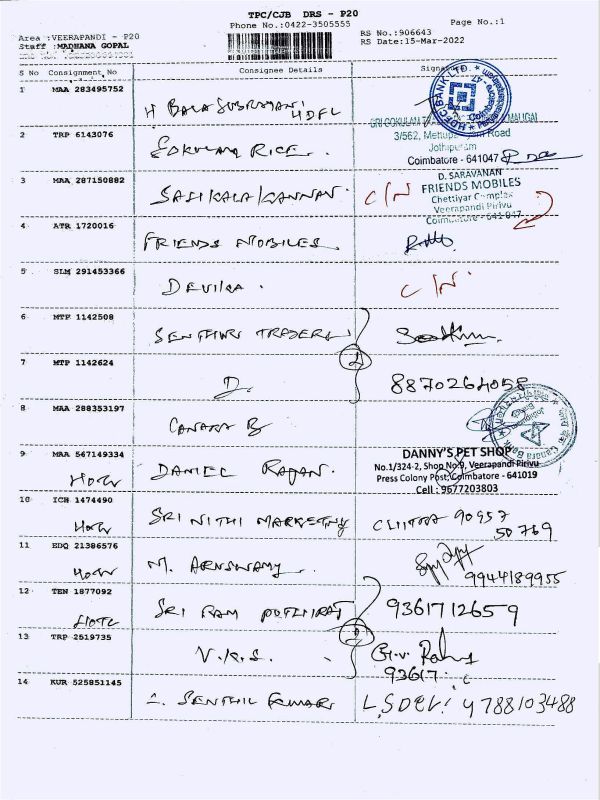 TPC/CJB DRS - P20
Phone No.:0422-3505555
Page No.:1
Area :VEERAPANDI - P20
Staff :MADHANA GOPAL
RS No.:906643
RS Date:15-Mar-2022
S No Consignment No Consignee Details
1 MAA 283495752
H BALA SUBRAMANI HDFC
HDFC BANK LTD.
2 TRP 6143076
GOKULAM RICE.
3/562, Mettupalayam Road
Jothipuram
Coimbatore - 641047
3 MAA 287150882
SASIKALA KANNAN. C/N
D. SARAVANAN
FRIENDS MOBILES
Chettiyar Complex
Veerapandi Pirivu
Coimbatore - 641 047
4 ATR 1720016
FRIENDS MOBILES
5 SLM 291453366
DEVIKA. C/N.
6 MTP 1142508
TRADERS
7 MTP 1142624
D. 8870264058
8 MAA 288353197
CANARA B
Canara Bank
9 MAA 567149334
DANIEL RAJAN.
DANNY'S PET SHOP
No.1/324-2, Shop No.9, Veerapandi Pirivu
Press Colony Post, Coimbatore - 641019
Cell : 9677203803
10 ICH 1474490
SRI NITHI MARKETING 90957
50769
11 EDQ 21386576
9944189955
12 TEN 1877092
SRI RAM 9361712659
13 TRP 2519735
V.K.S.
93617
14 KUR 525851145
SENTHIL KUMAR L.SDEVI 4788103488